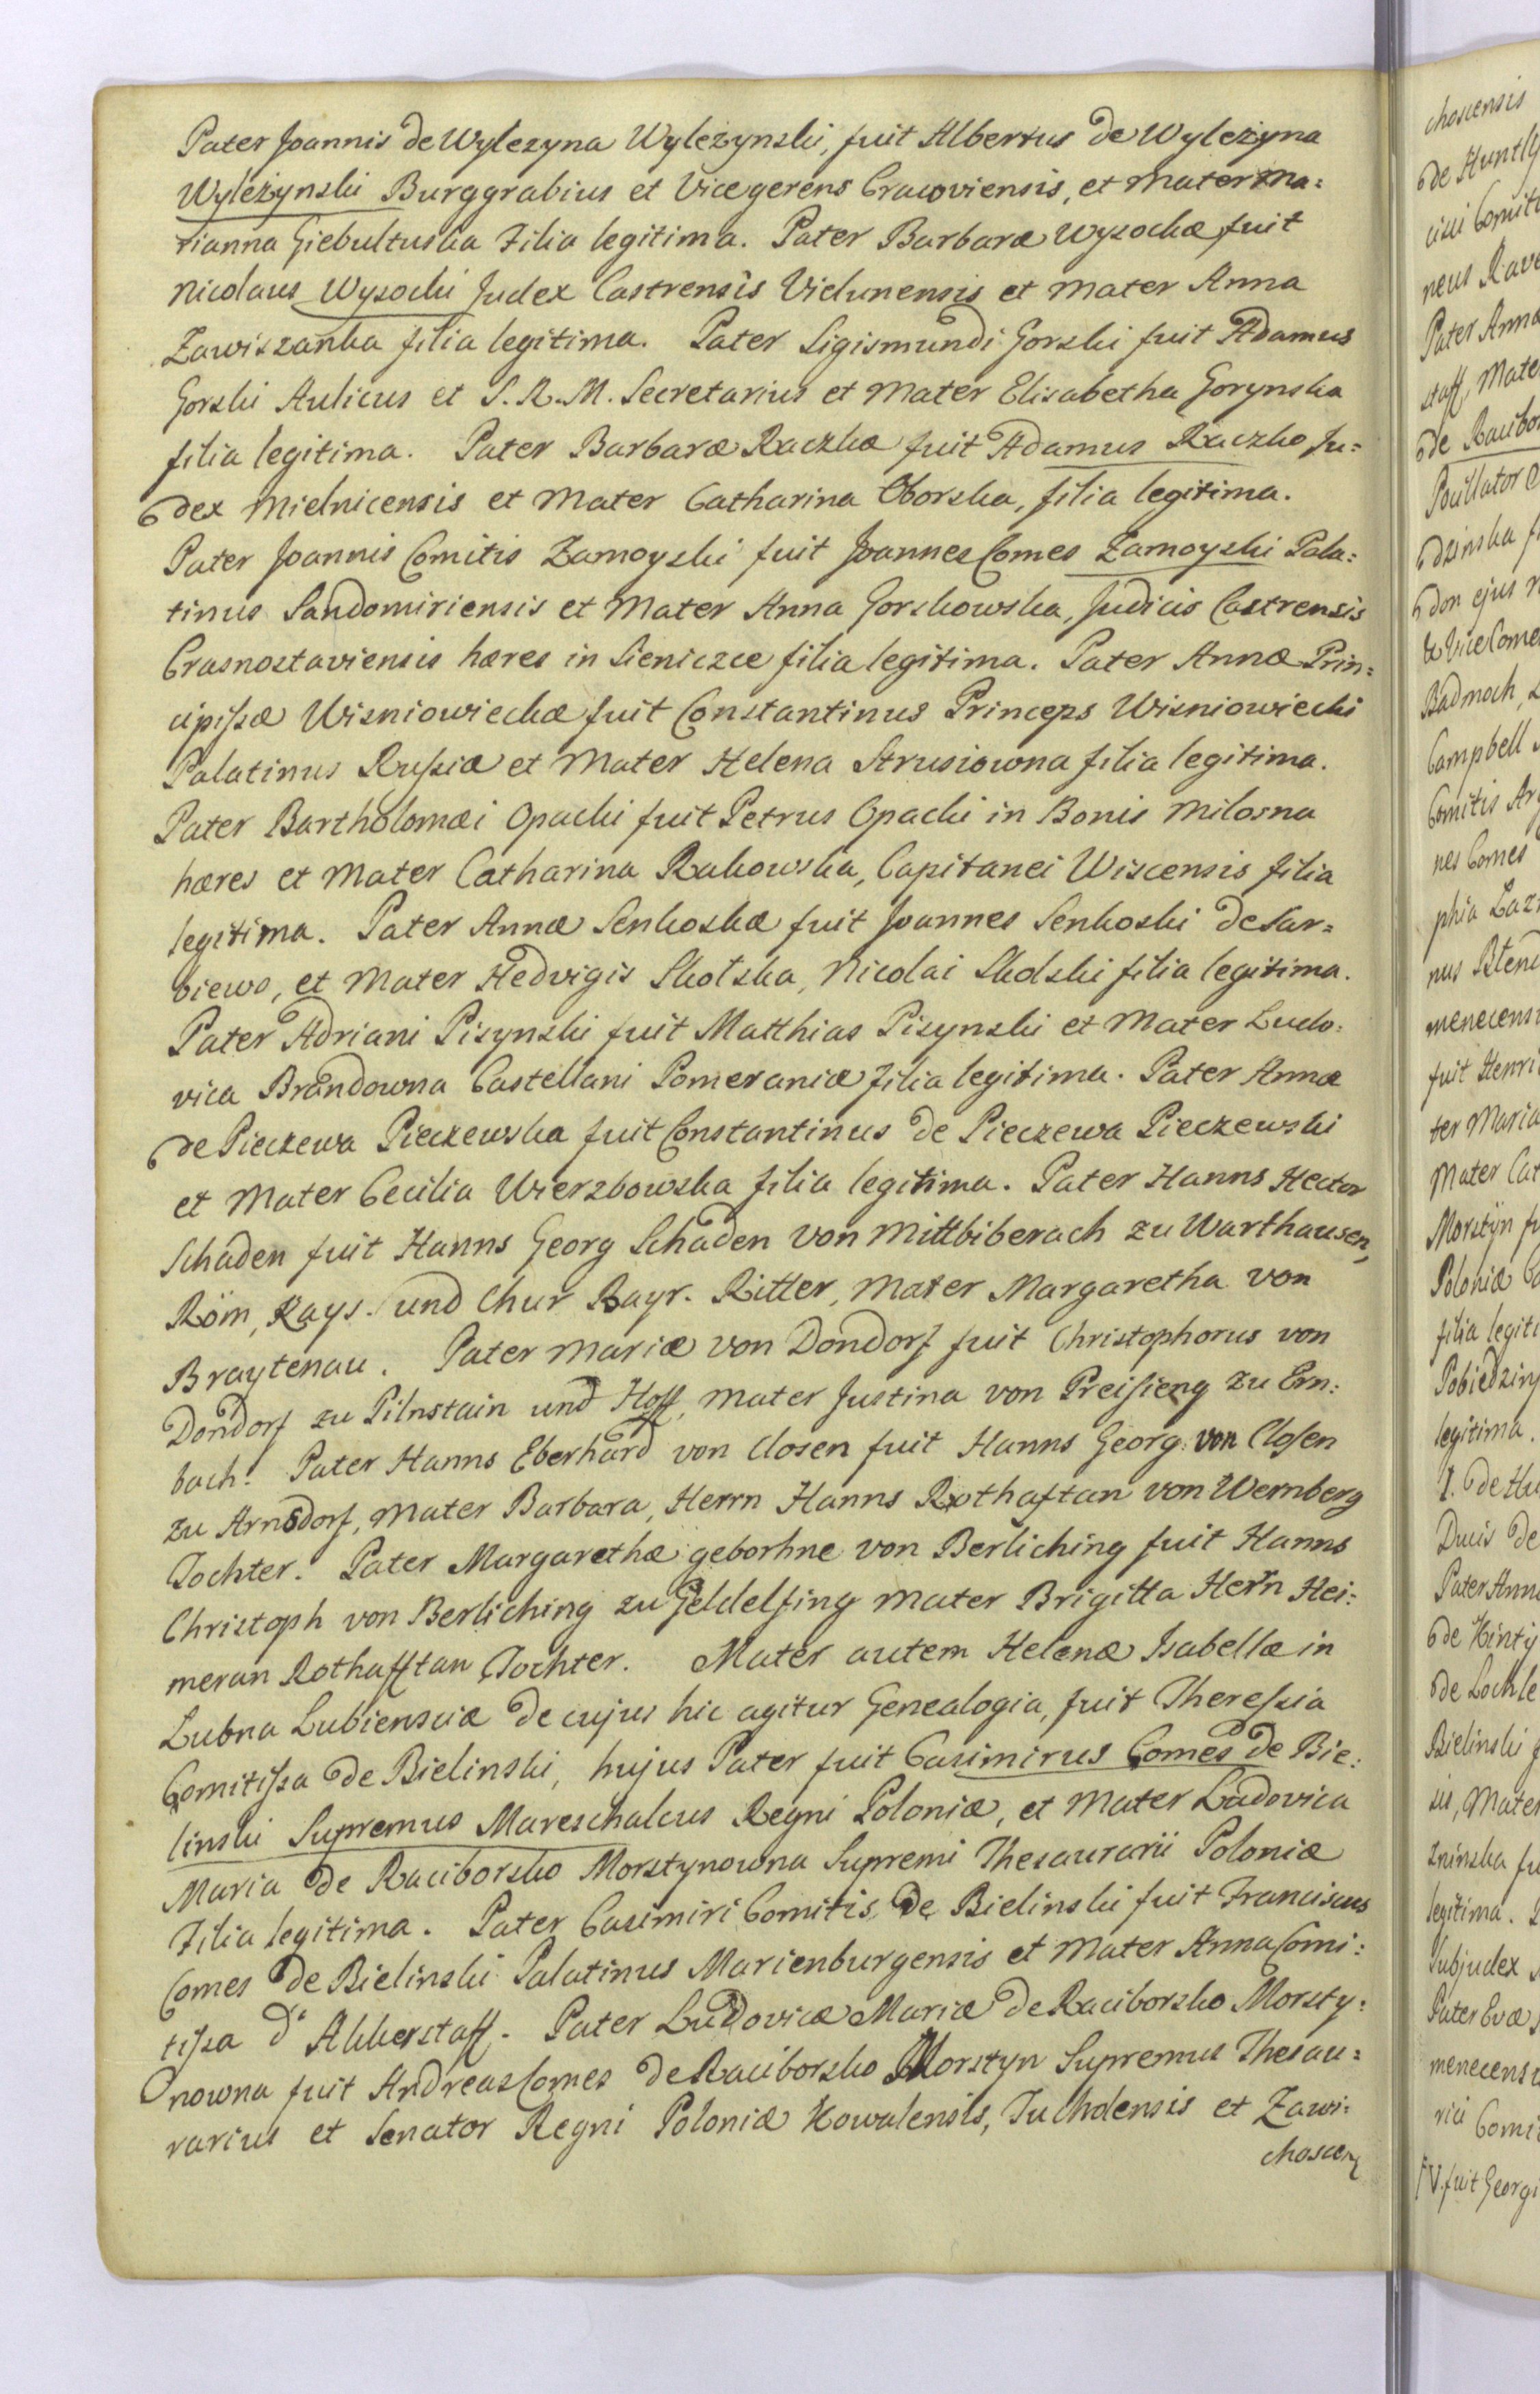 Pater Joannis de Wylezyna Wyleżynski, fuit Albertus de Wyleżyna
Wyleżynski Burggrabius et Vicegerens Cracoviensis, et Mater Ma=
rianna Giebultuska Filia legitima. Pater Barbaræ Wysockæ fuit
Nicolaus Wysocki Judex Castrensis Vielunensis et Mater Anna
Zawiszanka filia legitima. Pater Sigismundi Gorski fuit Adamus
Gorski Aulicus et S. R. M. Secretarius et Mater Elisabetha Gorynska
filia legitima. Pater Barbaræ Raczkæ fuit Adamus Raczko Ju=
dex Mielnicensis et Mater Catharina Oborska, filia legitima.
Pater Joannis Comitis Zamoyski fuit Joannes Comes Zamoyski Pala=
tinus Sandomiriensis et Mater Anna Gorskowska, Judicis Castrensis
Crasnostaviensis hæres in Sieniczce filia legitima. Pater Annæ Prin=
cipissæ Wisniowieckæ fuit Constantinus Princeps Wisniowiecki
Palatinus Russiæ et Mater Helena Strusiowna filia legitima.
Pater Bartholomæi Opacki fuit Petrus Opacki in Bonis Milosna
hæres et Mater Catharina Rakowska, Capitanei Wiscensis filia
legitima. Pater Annæ Senkoskæ fuit Joannes Senkoski de Sar=
biewo, et Mater Hedvigis Skotska, Nicolai Skolski filia legitima.
Pater Adriani Pisynski fuit Matthias Pisynski et Mater Ludo=
vica Brandowna Castellani Pomeraniæ filia legitima. Pater Annæ
de Pieczewa Pieczewska fuit Constantinus de Pieczewa Pieczewski
et Mater Cecilia Wierzbowska filia legitima. Pater Hanns Hector
Schaden fuit Hanns Georg Schaden von Mittbiberach zu Warthausen,
Röm, Kays. und Chur Bayr. Ritter, Mater Margaretha von
Braytenau. Pater Mariæ von Dondorf fuit Christophorus von
Dondorf zu Pilnstain und Hoff, Mater Justina von Preisieng zu Ern=
bach. Pater Hanns Eberhard von Closen fuit Hanns Georg von Closen
zu Arnsdorf, Mater Barbara, Herrn Hanns Rothaftan von Wernberg
Tochter. Pater Margarethæ geborhne von Berliching fuit Hanns
Christoph von Berliching zu Geldelfing Mater Brigitta Herrn Hei=
meran Rothafftan Tochter. Mater autem Helenæ Isabellæ in
Lubna Lubienscia de cujus hic agitur Genealogia, fuit Theressia
Comitissa de Bielinski, hujus Pater fuit Casimirus Comes de Bie=
linski Supremus Mareschalcus Regni Poloniæ, et Mater Ludovica
Maria de Raciborsko Morstynowna Supremi Thesaurarii Poloniæ
Filia legitima. Pater Casimiri Comitis De Bielinski fuit Franciscus
Comes de Bielinski Palatinus Marienburgensis et Mater Anna Comi=
tissa d'Akkerstaff. Pater Ludovicæ Mariæ de Raciborsko Morsty=
nowna fuit Andreas Comes de Raciborsko Morstyn Supremus Thesau=
rarius et Senator Regni Poloniæ Kowalensis, Tucholensis et Zawi=
choscen
choscensis
de Huntly
cisci Comit
neus Rave
Pater Annæ
staff, Mate
de Racibo
Pocillator
dzinska f
don ejus
& Vice Come
Badnoch,
Campbell
Comitis Ar
nes Comes
phia Laz
nus
menecens
fuit Henri
ter Maria
Mater Cat
Morstÿn fu
Poloniæ C
filia legiti
Pobiedzin
legitima.
I. de Hu
Ducis de
Pater Annæ
de Kinty
de Lochle
Bielinski f
sis, Mater
zninska fu
legitima.
Subjudex
Pater Evæ
menecens
rici Comi
V. fuit Georgi